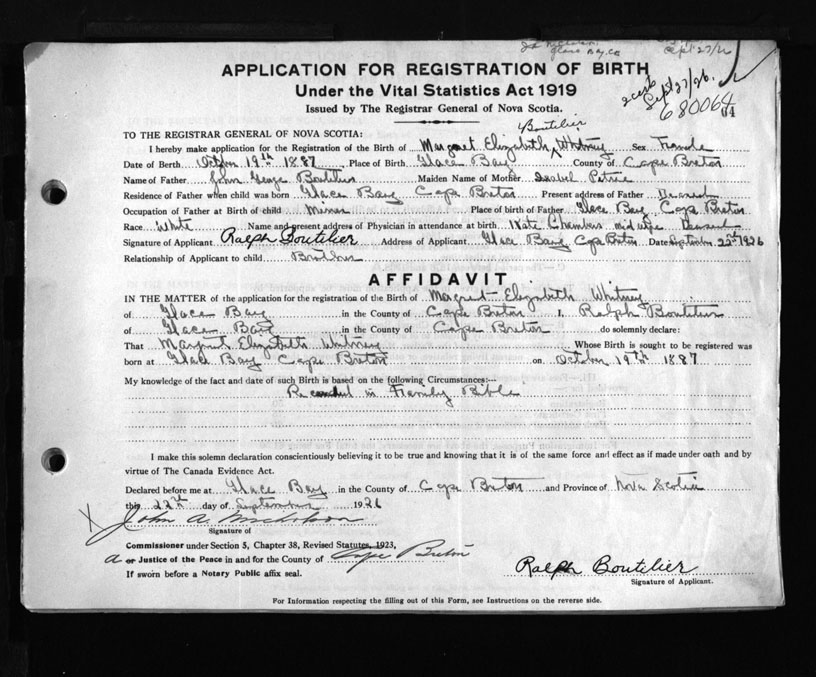 Glace Bay, CB Sept 27/26
APPLICATION FOR REGISTRATION OF BIRTH
Under the Vital Statistics Act 1919
2 certs Sept 27/26.
Issued by The Registrar General of Nova Scotia.
680064
04
TO THE REGISTRAR GENERAL OF NOVA SCOTIA:
Boutilier
I hereby make application for the Registration of the Birth of Margaret Elizabeth Whitney Sex Female
Date of Birth October 19th 1887 Place of Birth Glace Bay County of Cape Breton
Name of Father John George Boutilier Maiden Name of Mother Isabel Petrie
Residence of Father when child was born Glace Bay Cape Breton Present address of Father Deceased
Occupation of Father at Birth of child Miner Place of birth of Father Glace Bay Cape Breton
Race White Name and present address of Physician in attendance at birth Kate Chambers midwife Deceased
Signature of Applicant Ralph Boutilier Address of Applicant Glace Bay Cape Breton Date September 22nd 1926
Relationship of Applicant to child Brother
AFFIDAVIT
IN THE MATTER of the application for the registration of the Birth of Margret Elizabeth Whitney
of Glace Bay in the County of Cape Breton I, Ralph Boutilier
of Glace Bay in the County of Cape Breton do solemnly declare:
That Margret Elizabeth Whitney Whose Birth is sought to be registered was
born at Glace Bay Cape Breton on October 19th 1887
My knowledge of the fact and date of such Birth is based on the following Circumstances:—
Recorded in Family Bible
I make this solemn declaration conscientiously believing it to be true and knowing that it is of the same force and effect as if made under oath and by
virtue of The Canada Evidence Act.
Declared before me at Glace Bay in the County of Cape Breton and Province of Nova Scotia
this 22nd day of September 1926
X John A. McDonald
Signature of
Commissioner under Section 5, Chapter 38, Revised Statutes, 1923,
a or Justice of the Peace in and for the County of Cape Breton
If sworn before a Notary Public affix seal.
Ralph Boutilier
Signature of Applicant.
For Information respecting the filling out of this Form, see Instructions on the reverse side.